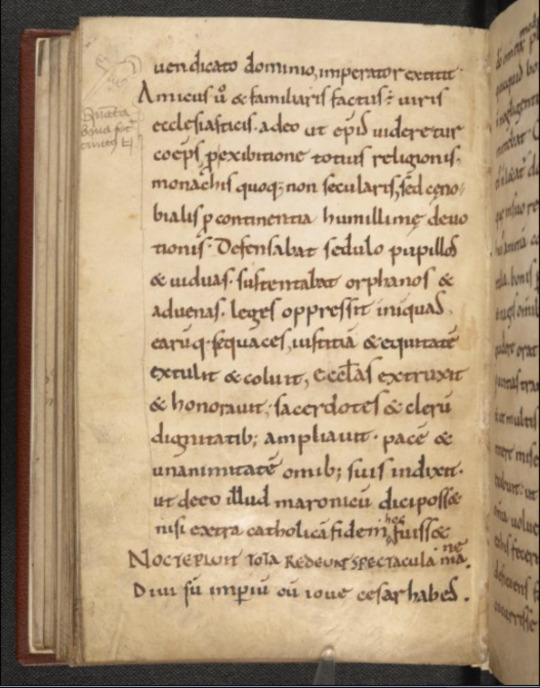 uendicato dominio, imperator extitit·
Amicus u̅ & familiaris factus: uiris
ecclesiasticis· adeo ut ep̅s uideretur
coep̅s ꝓ exibitione totius religionis·
monachis quoq; non secularis, sed ceno-
bialis ꝓ continentia humillime deuo
tionis· Defensabat sedulo pupillos
& uiduas· sustentabat orphanos &
aduenas· leges oppressit iniquas,
earu̅q· sequaces, iustitia̅ & equitate̅
extulit & coluit, eccl̅as extruxit
& honorauit, sacerdotes & cleru̅
dignitatib; ampliauit· pace̅ &
unanimitate̅ omib; suis indixit·
ut de eo illud maronicu̅ dici poss&
nisi extra catholica̅ fidem hoc fuiss&
NOCTE PLUIT TOTA REDEUNT SPECTACULA mane.
Diui su̅ imp̲iu̅ cu̅ ioue cesar habes.